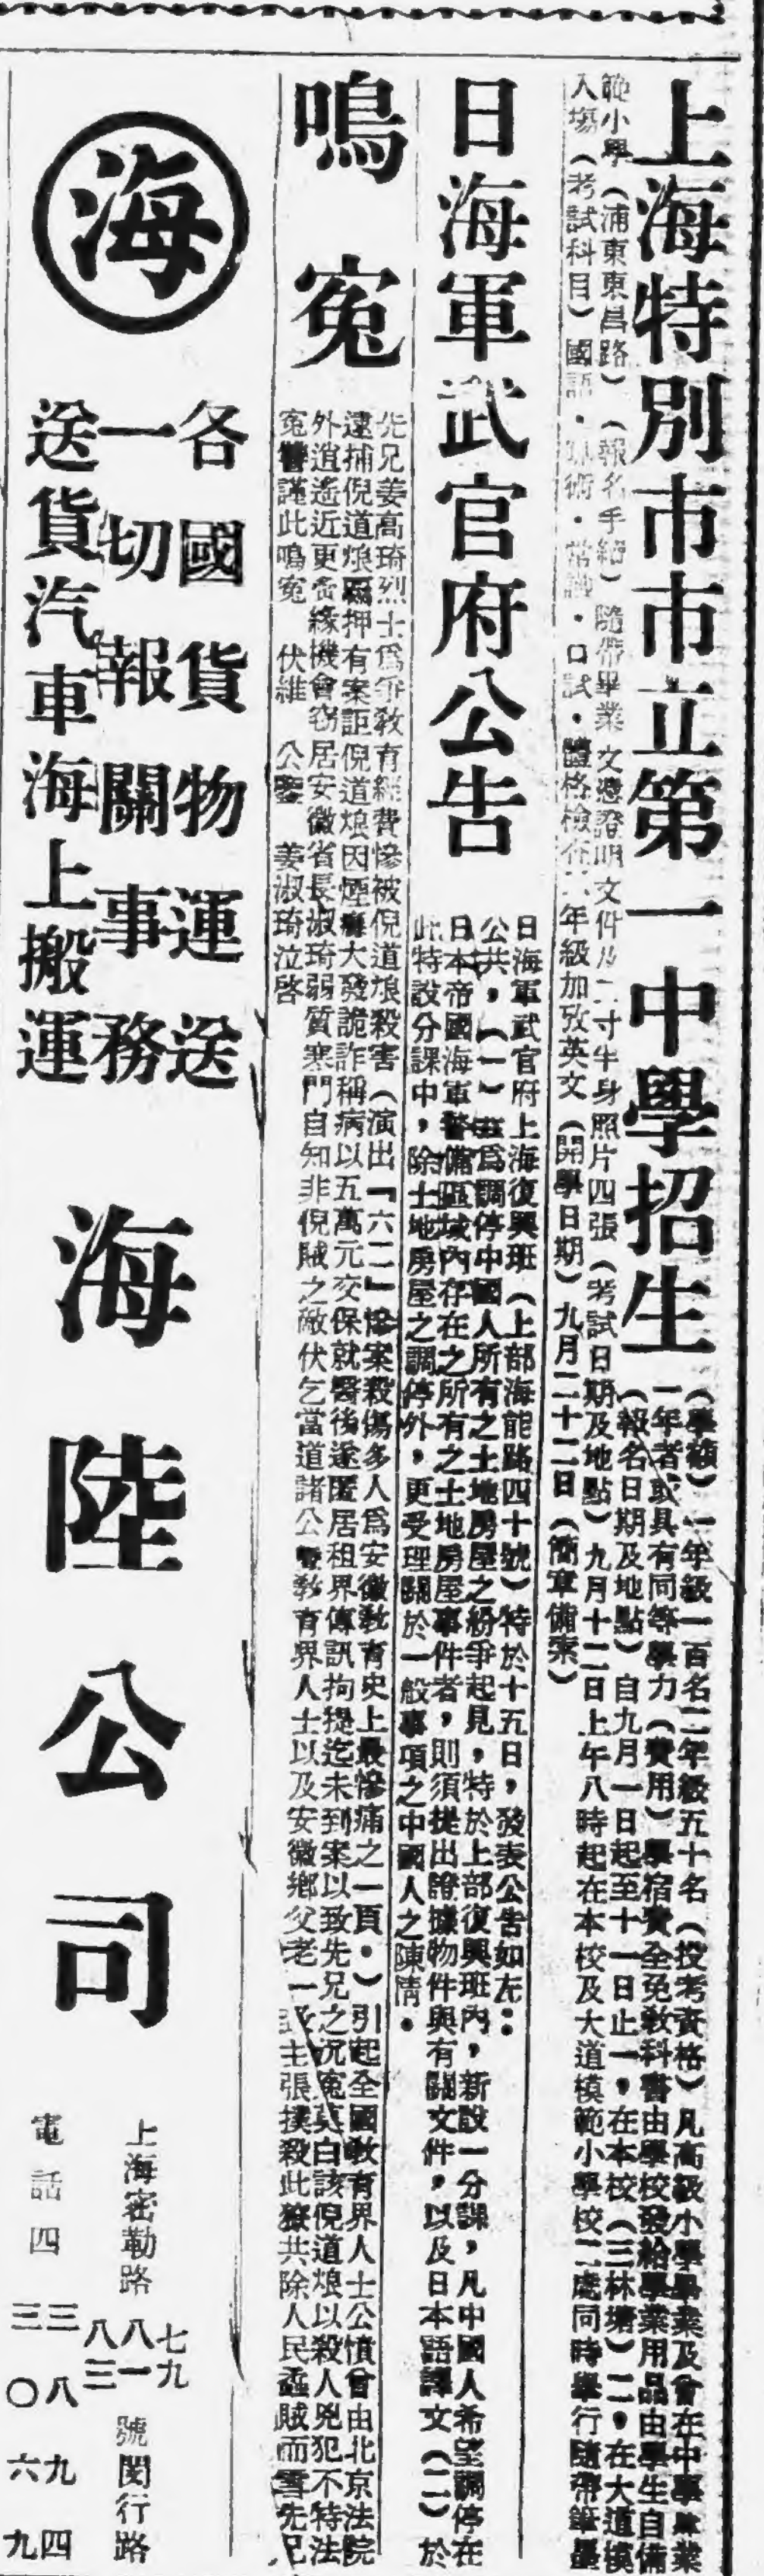 上海特別市市立第一中學招生
（學額）一年級一百名二年級五十名（投考資格）凡高級小學畢業及曾在中學肄業
一年者或具有同等學力（費用）學宿費全免教科書由學校發給學業用品由學生自備
（報名日期及地點）自九月一日起至十一日止一，在本校（三林塘）二，在大道模
範小學（浦東東昌路）（報名手續）隨帶畢業文憑證明文件及二寸半身照片四張（考試日期及地點）九月十二日上午八時起在本校及大道模範小學校二處同時舉行隨帶筆墨
入場（考試科目）國語・算術・常識・口試・體格檢查二年級加攷英文（開學日期）九月二十二日（簡章備案）
日海軍武官府公告
日海軍武官府上海復興班（上部海能路四十號）特於十五日，發表公告如左：
公共，（一）茲為調停中國人所有之土地房屋之紛爭起見，特於上部復興班內，新設一分課，凡中國人希望調停在
日本帝國海軍警備區域內存在之所有之土地房屋事件者，則須提出證據物件與有關文件，以及日本語譯文（二）於
此特設分課中，除土地房屋之調停外，更受理關於一般事項之中國人之陳情・
鳴冤
先兄姜高琦烈士爲爭教育經費慘被倪道烺殺害（演出『六二』慘案殺傷多人爲安徽教育史上最慘痛之一頁・）引起全國教育界人士公憤曾由北京法院
逮捕倪道烺羈押有案詎倪道烺因煙癮大發詭詐稱病以五萬元交保就醫後遂匿居租界傳訊拘提迄未到案以致先兄之沉冤莫白該倪道烺以殺人兇犯不特法
外逍遙近更夤緣機會窃居安徽省長淑琦弱質寒門自知非倪賊之敵伏乞當道諸公暨教育界人士以及安徽鄉父老一致主張撲殺此獠共除人民蟊賊而雪先兄
冤讐謹此鳴冤　伏維　公鑒　姜淑琦泣啓
海
各國貨物運送
一切報關事務
送貨汽車海上搬運
海陸公司
上海密勒路七九八一八三號閔行路
電話四三八九四
三〇六九